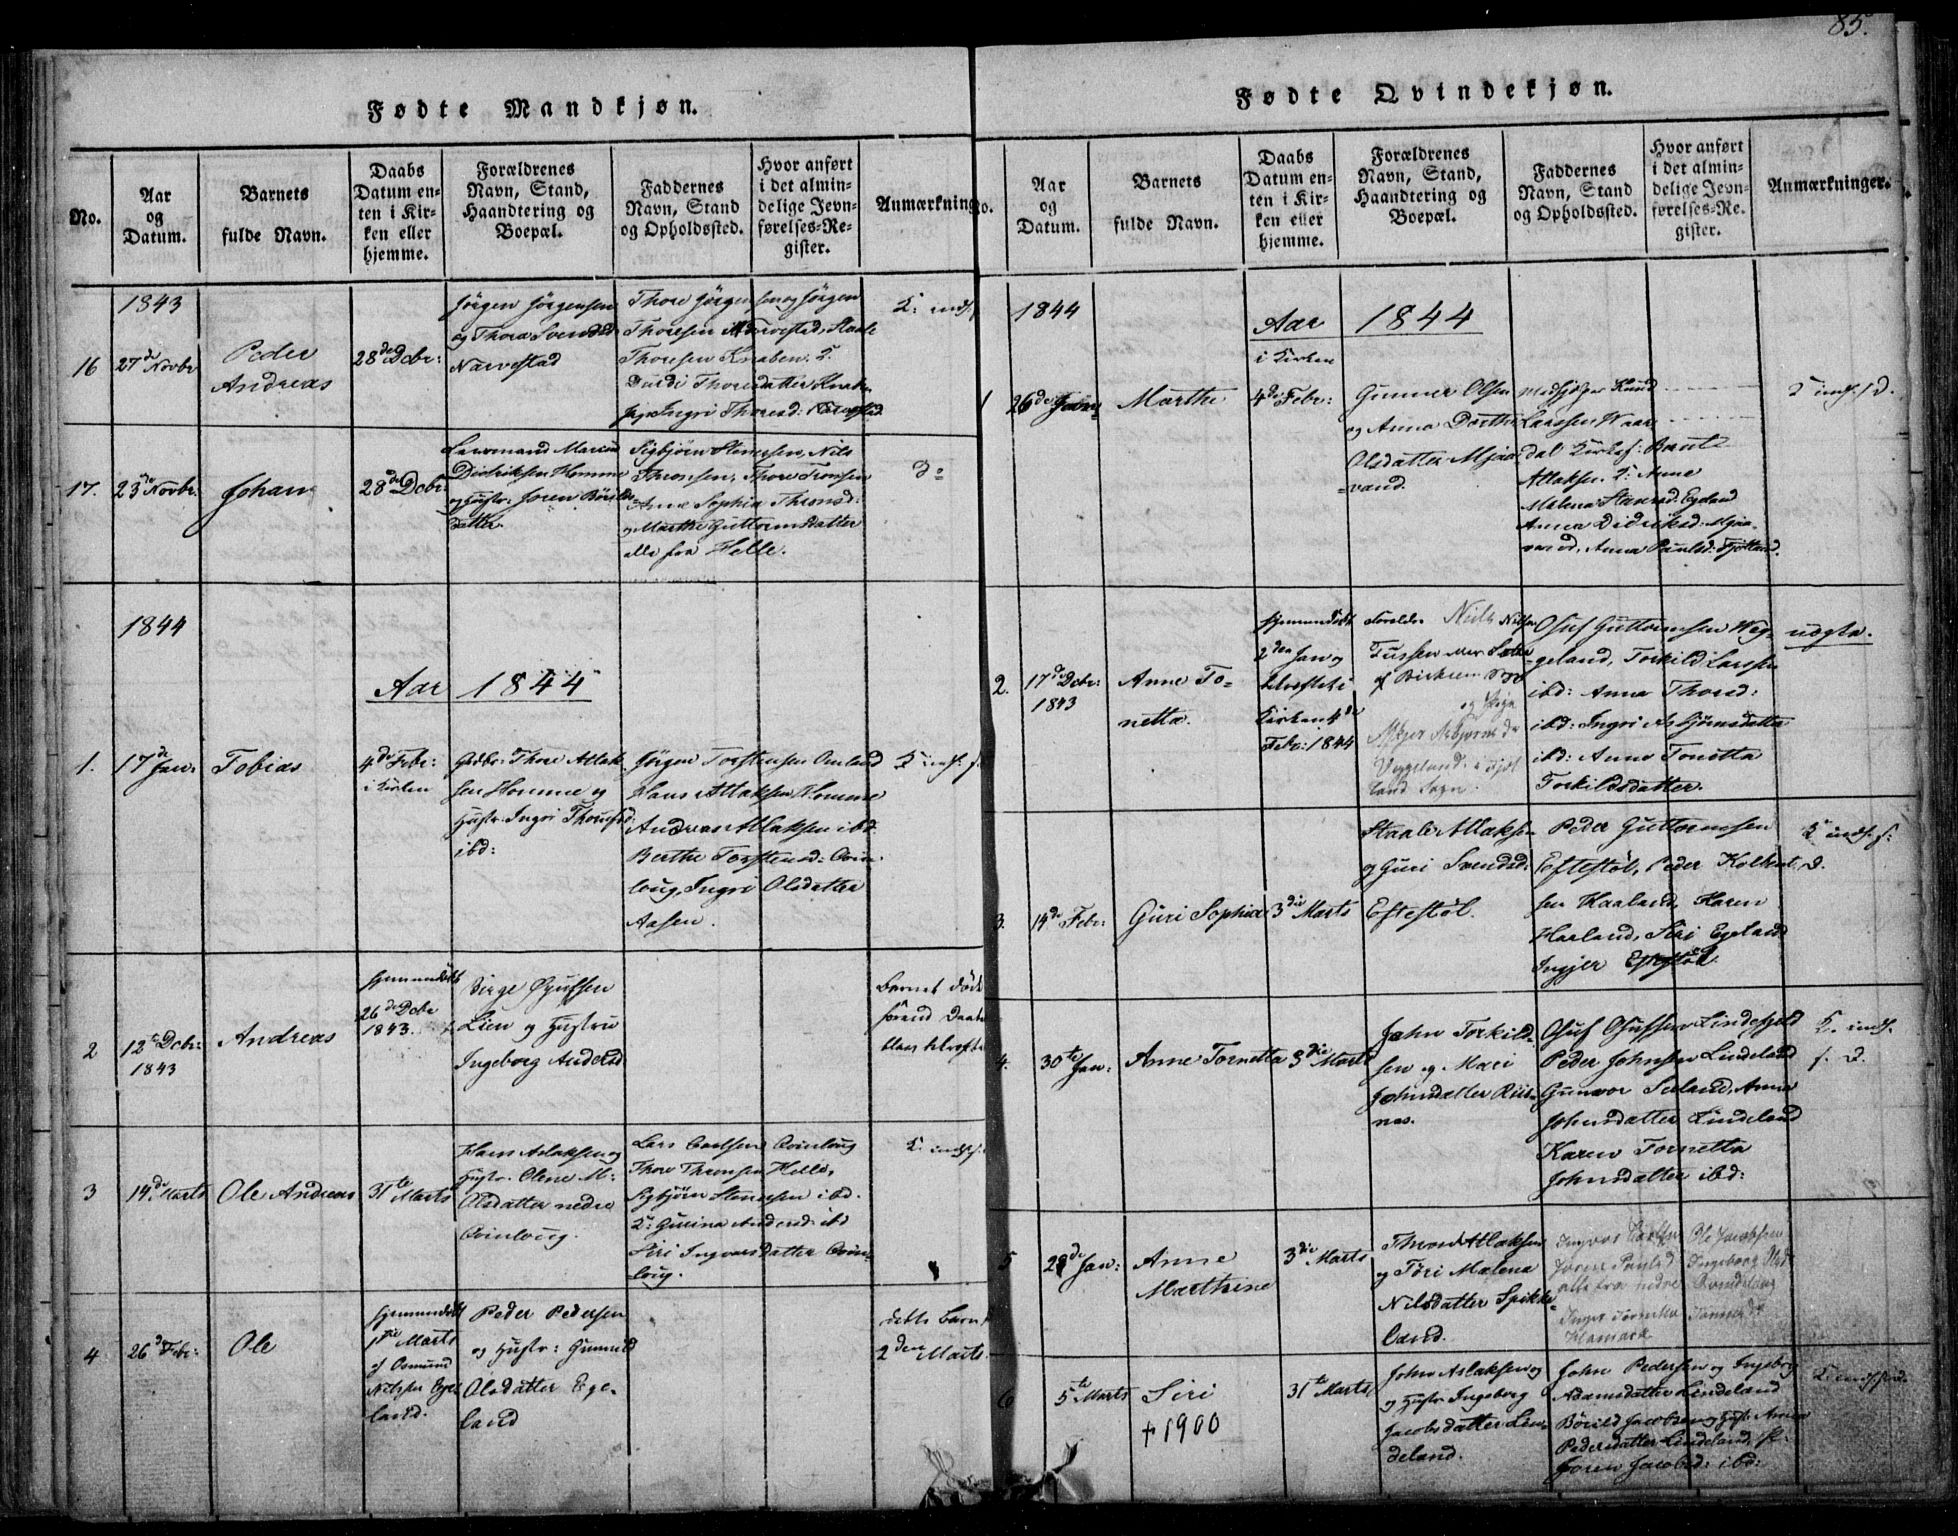 85.
Fødte Mandkjøn.
No.
Aar
og
Datum.
Barnets
fulde Navn.
Daabs
Datum en-
ten i Kir-
ken eller
hjemme.
Forældrenes
Navn, Stand,
Haandtering og
Boepæl.
Faddernes
Navn, Stand
og Opholdssted.
Hvor anført
i det almin-
delige Jevn-
førelses-Re-
gister.
Anmærkning
1843
16
27de Novbr
Peder
Andreas
28de Dcbr:
Jörgen Jörgensen
og Thore Svendsd
Narvestad
Thore Jörgensen og Jörgen
Thoresen Narvestad, Staale
Thoresen Knaben. K.
Thoresdatter
Ingri Thoresd: Narvestad
K: inds.
17.
23de Novbr.
Johan
28de Dcbr:
Didriksen Homme
og Hustr: Joren
datter
Sigbjörn Stenersen, Nils
Thronsen, Thore Tronsen
Anne Sophia Thronsd:
og Marthe Guttormsdatter
alle fra Helle.
1844
Aar 1844
1.
17de Jan:
Tobias
4de Febr:
i Kirken
Gdbr: Thore Atlak-
sen Homme og
Hustr. Ingri Thorsd:
ibd:
Jörgen Torstensen Omland
Hans Atlaksen Homme
Andreas Atlaksen ibd
Berthe Torstensd: Ovin-
loug, Ingri Olsdatter
Aasen.
K inds. f.
2
12te Dcbr:
1843
Andreas
hjemmedöbt
26de Dcbr
1843.
Birge Osufsen
Lien og Hustru
Ingeborg Andersd
Barnet döde
forend Daaben
blev
3
14de Marts
Ole Andreas
31te Marts
Hans Aslaksen og
Hustr. Olene M:
Olsdatter nedre
Ovinloug.
Lars Ovinloug
Thore Thronsen Helle,
Sigbjörn Stenersen ibd.
K: Gurina Andersd: ibd
Siri Ingvarsdatter Ovin-
loug.
K. inds f.
4
26de Febr:
Ole
hjemmedöbt
1ste Marts
af Osmund
Nilssen Ege-
land.
Peder Pedersen
og Hustr: Gunnild
Olsdatter Ege-
land
dette Barn
2den Marts.
Fødte Qvindekjøn.
No.
Aar
og
Datum.
Barnets
fulde Navn.
Daabs
Datum en-
ten i Kir-
ken eller
hjemme.
Forældrenes
Navn, Stand,
Haandtering og
Boepæl.
Faddernes
Navn, Stand
og Opholdssted.
Hvor anført
i det almin-
delige Jevn-
førelses-Re-
gister.
Anmærkninger.
1844
Aar 1844
1
26de Jan:
Marthe
i Kirken
4de Febr:
Gunner Olsen
og Anna Dorthe
Olsdatter Mjaa-
vand.
Knud
Larssen Waar-
dal Bent
Atlaksen. K: Anne
Malena Staaresd: Egeland
Anna Didriksd: Mjaa-
vand, Anna Paulsd: Fjotland.
K inds. f. d.
2.
17de Dcbr:
1843
Anne To-
netta.
hjemmedöbt
2den Jan og
i
Kirken 4de
Febr: 1844
Niels Nilsen
Tussen
Asbjörnsdr
Veggeland i Fjot-
land Sogn.
Osuf Guttormsen Weg-
geland, Torkild Larssen
ibd: Anna Thorsd:
ibd: Ingri Asbjörnsdatter
ibd: Anne Tonetta
Torkildsdatter.
uægte.
3.
14de Febr:
Guri Sophia
3die Marts
Staale Atlaksen
og Guri Svendsd:
Eftestöl.
Peder Guttormsen
Eftestöl, Peder Kolbent-
sen Haaland, Karen
Haaland, Siri Egeland
Ingjer Eftestöl
K inds. f.
d.
4.
30te Jan:
Anne Tornetta
3die Marts
John Torkild-
sen og Mari
Johnsdatter Riis-
næs.
Osuf Osufsen Lindefjeld
Peder Johnsen Lindeland
Gunvor Seland, Anne
Johnsdatter Lindeland
Karen Tornetta
Johnsdatter ibd:
K. inds.
f. d.
5
28de Jan:
Anne
Marthine
3die Marts
Thord Atlaksen
og Töri Malena
Nilsdatter Spikke-
land.
Ole Jacobsen
Joren Paulsd Ingeborg
alle fra nedre
6
5te Marts
Siri
+ 1900
31te Marts
John Aslaksen og
og Hustr Ingeborg
Jacobsdatter Lin-
deland.
John Pedersen og Ingeborg
Adamsdatter Lindeland
Böreld Jacobsen og Hust: Anna
Pedersdatter Lindeland,
Joren Jacobsd: ibd:
K inds f. d.